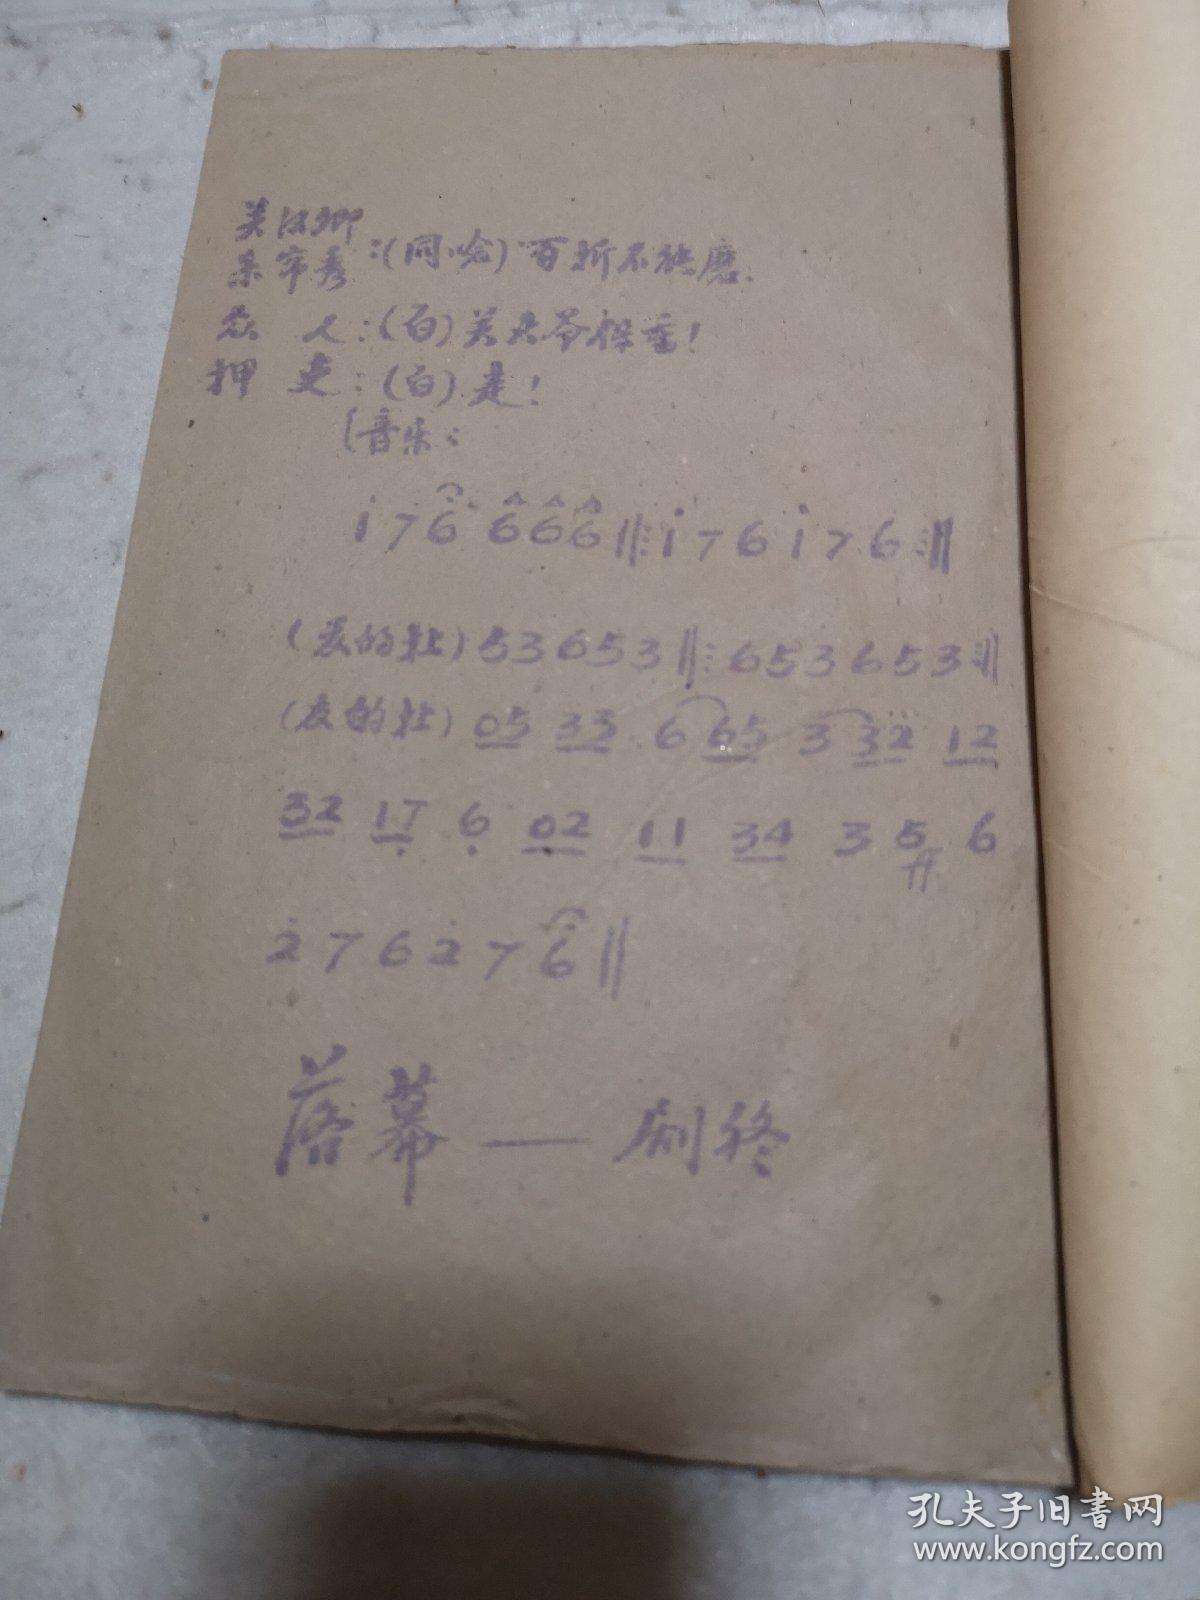 关汉卿
朱帘秀:(同唸)百折不能磨.
众 人:(白)关大爷保重!
押 吏:(白)是!
〔音乐:
i 7 6 6 6 6 ‖: i 7 6 i 7 6 :‖
5 3 6 5 3 ‖: 6 5 3 6 5 3 :‖
05 33 6 65 3 32 12
32 17 6 02 11 34 3 5 6
2 7 6 2 7 6 ‖
落幕——剧终
孔夫子旧书网
www.kongfz.com